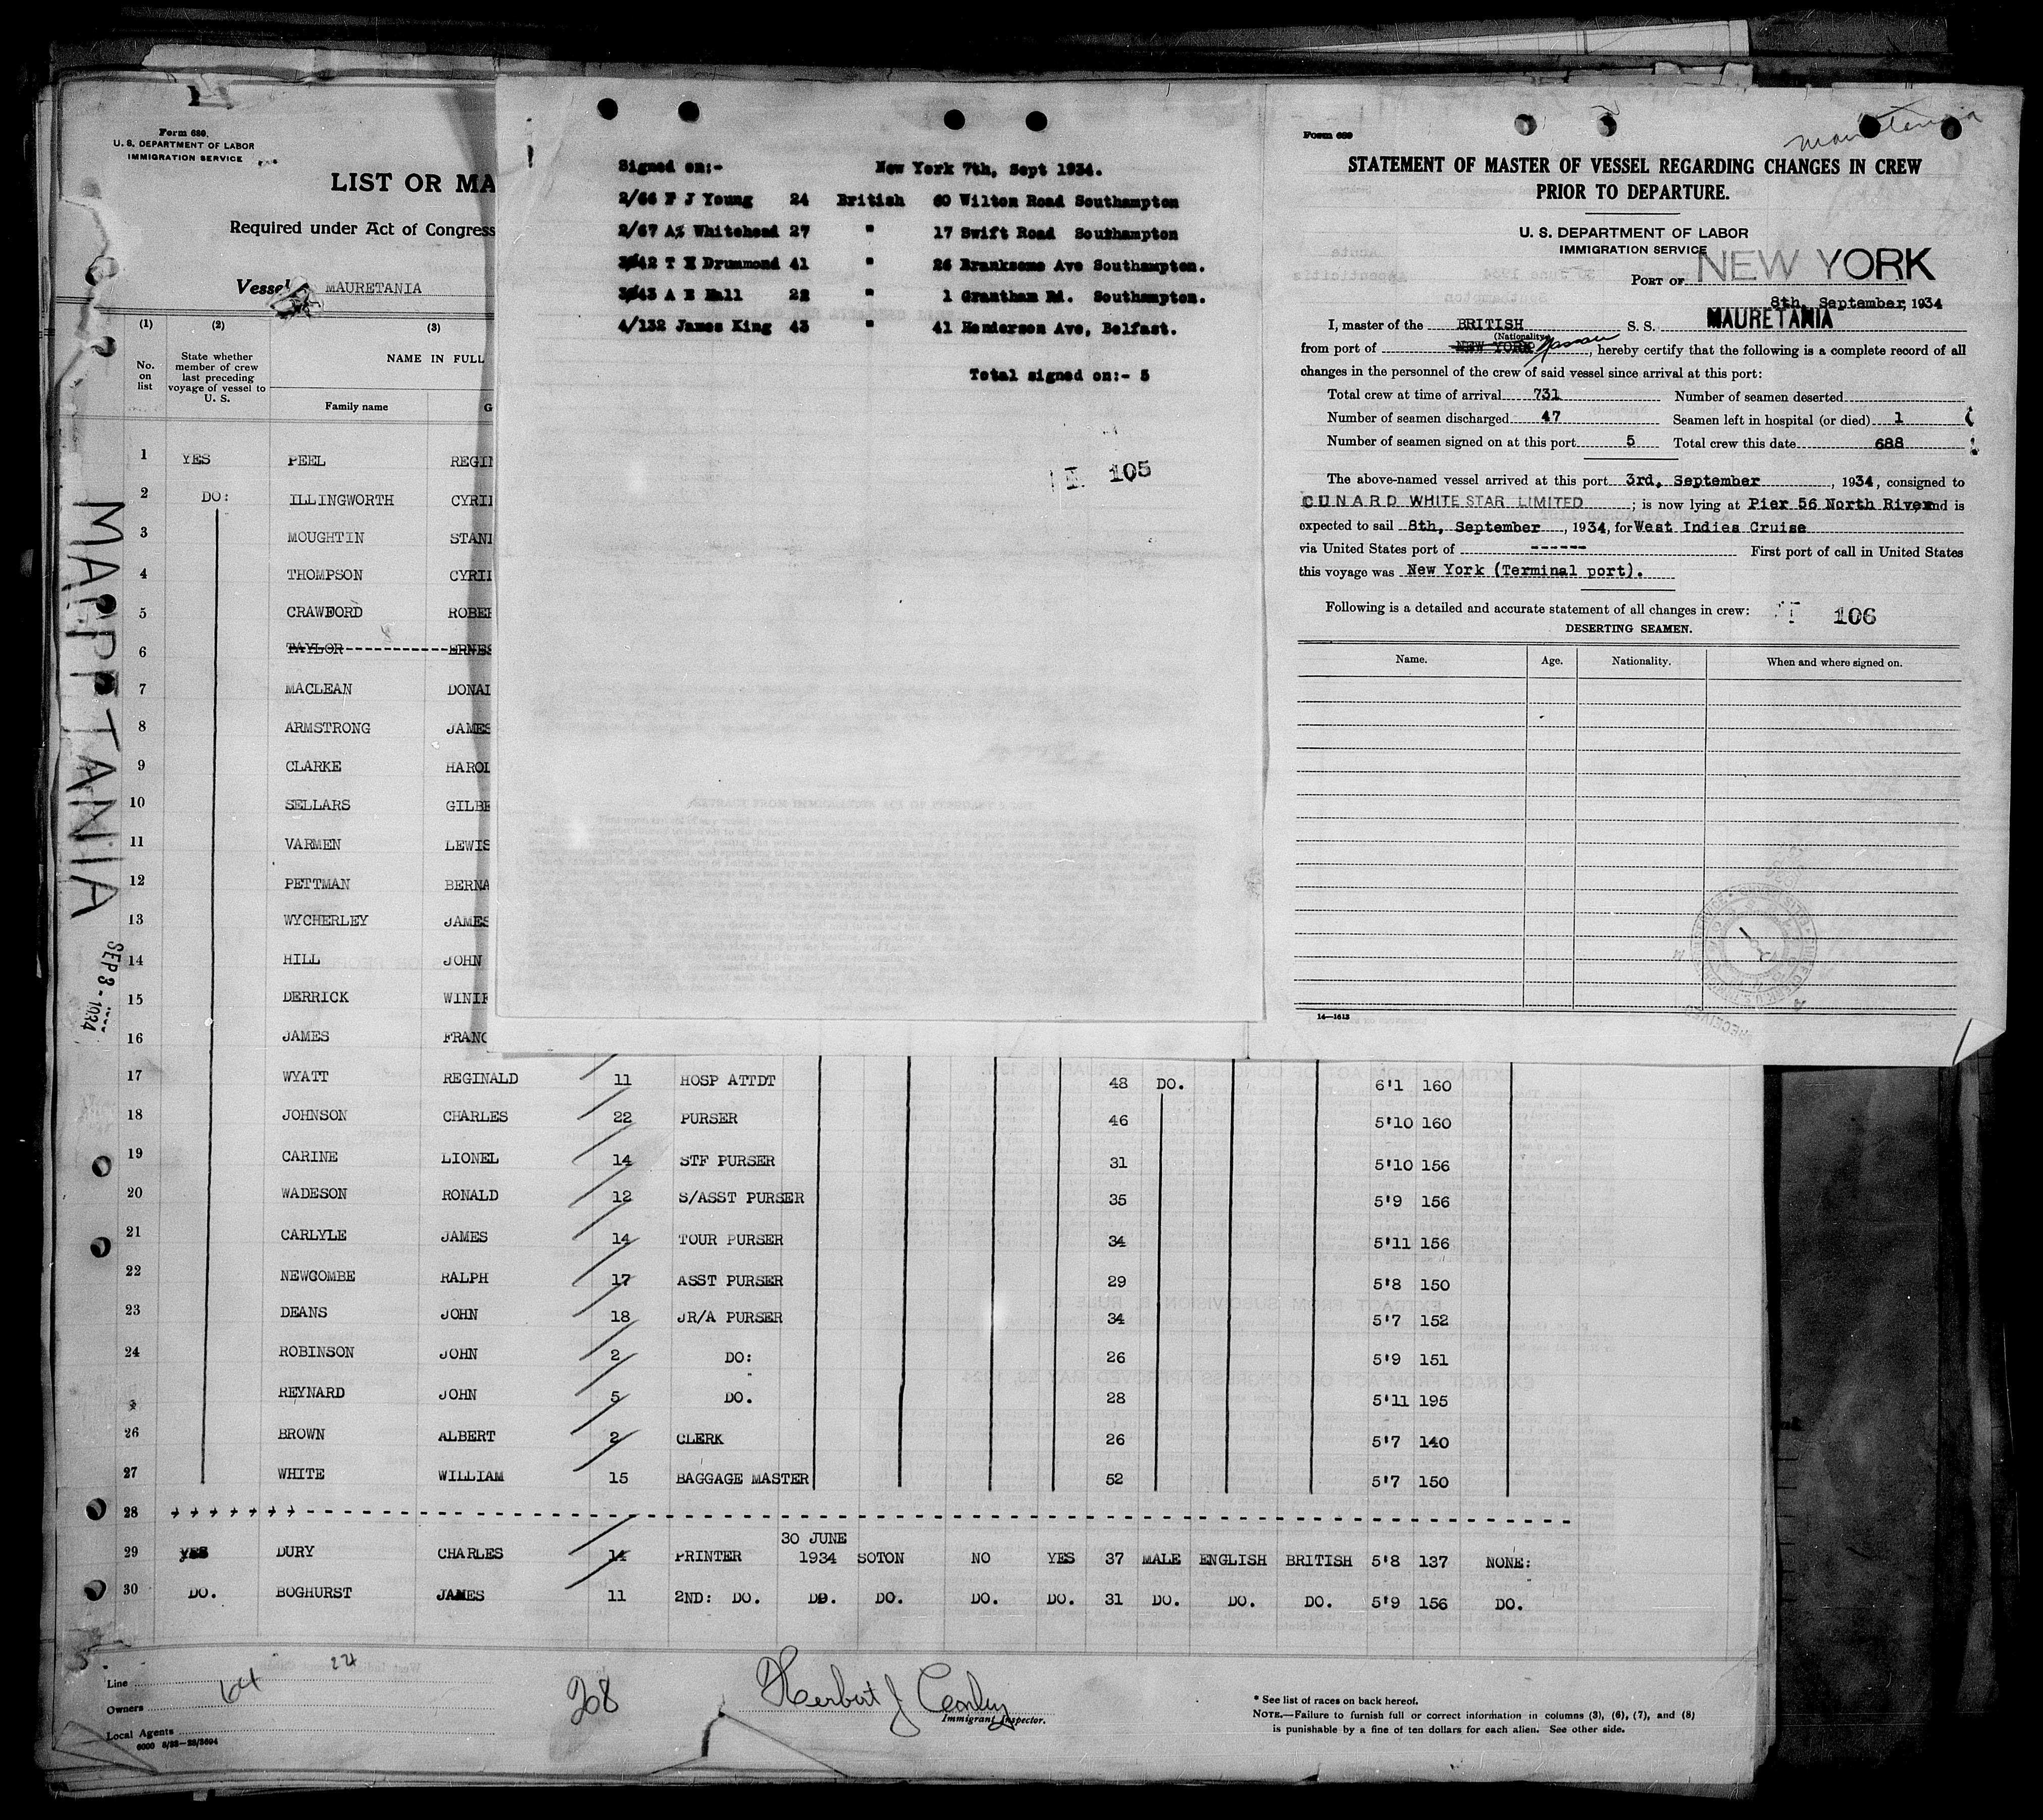 Form 680.
U. S. DEPARTMENT OF LABOR
IMMIGRATION SERVICE
LIST OR MA
Required under Act of Congress
Vessel MAURETANIA
(1) (2) (3)
No. on list
State whether member of crew last preceding voyage of vessel to U. S.
NAME IN FULL
Family name G
1 YES PEEL REGIN
2 DO: ILLINGWORTH CYRIL
3 MOUGHTIN STANL
4 THOMPSON CYRIL
5 CRAWFORD ROBER
6 TAYLOR ERNES
7 MACLEAN DONAL
8 ARMSTRONG JAMES
9 CLARKE HAROL
10 SELLARS GILBE
11 VARMEN LEWIS
12 PETTMAN BERNA
13 WYCHERLEY JAMES
14 HILL JOHN
15 DERRICK WINIF
16 JAMES FRANC
17 WYATT REGINALD 11 HOSP ATTDT 48 DO. 6'1 160
18 JOHNSON CHARLES 22 PURSER 46 5'10 160
19 CARINE LIONEL 14 STF PURSER 31 5'10 156
20 WADESON RONALD 12 S/ASST PURSER 35 5'9 156
21 CARLYLE JAMES 14 TOUR PURSER 34 5'11 156
22 NEWCOMBE RALPH 17 ASST PURSER 29 5'8 150
23 DEANS JOHN 18 JR/A PURSER 34 5'7 152
24 ROBINSON JOHN 2 DO: 26 5'9 151
REYNARD JOHN 5 DO. 28 5'11 195
26 BROWN ALBERT 2 CLERK 26 5'7 140
27 WHITE WILLIAM 15 BAGGAGE MASTER 52 5'7 150
28
30 JUNE
29 YES DURY CHARLES 14 PRINTER 1934 SOTON NO YES 37 MALE ENGLISH BRITISH 5'8 137 NONE:
30 DO. BOGHURST JAMES 11 2ND: DO. DO. DO. DO. DO. 31 DO. DO. DO. 5'9 156 DO.
Line 24
Owners 64
Local Agents
6000 8/33—28/3604
208
Herbert J Conley
Immigrant Inspector.
* See list of races on back hereof.
NOTE.—Failure to furnish full or correct information in columns (3), (6), (7), and (8)
is punishable by a fine of ten dollars for each alien. See other side.
MAPPTANIA
SEP 3 - 1934
Signed on:- New York 7th, Sept 1934.
2/66 F J Young 24 British 60 Wilton Road Southampton
2/67 A Whitehead 27 " 17 Swift Road Southampton
3/42 T H Drummond 41 " 26 Branksome Ave Southampton.
3/43 A E Hall 22 " 1 Grantham Rd. Southampton.
4/132 James King 43 " 41 Henderson Ave, Belfast.
Total signed on:- 5
I 105
Form 689
Mauretania
STATEMENT OF MASTER OF VESSEL REGARDING CHANGES IN CREW
PRIOR TO DEPARTURE.
U. S. DEPARTMENT OF LABOR
IMMIGRATION SERVICE
PORT OF NEW YORK
8th, September, 1934
I, master of the BRITISH S. S. MAURETANIA
(Nationality)
from port of NEW YORK Nassau, hereby certify that the following is a complete record of all
changes in the personnel of the crew of said vessel since arrival at this port:
Total crew at time of arrival 731 Number of seamen deserted
Number of seamen discharged 47 Seamen left in hospital (or died) 1
Number of seamen signed on at this port 5 Total crew this date 688
The above-named vessel arrived at this port 3rd, September, 1934, consigned to
CUNARD WHITE STAR LIMITED; is now lying at Pier 56 North River and is
expected to sail 8th, September, 1934, for West Indies Cruise
via United States port of ------ First port of call in United States
this voyage was New York (Terminal port).
Following is a detailed and accurate statement of all changes in crew:
I 106
DESERTING SEAMEN.
Name. Age. Nationality. When and where signed on.
14—1613
RECEIVED